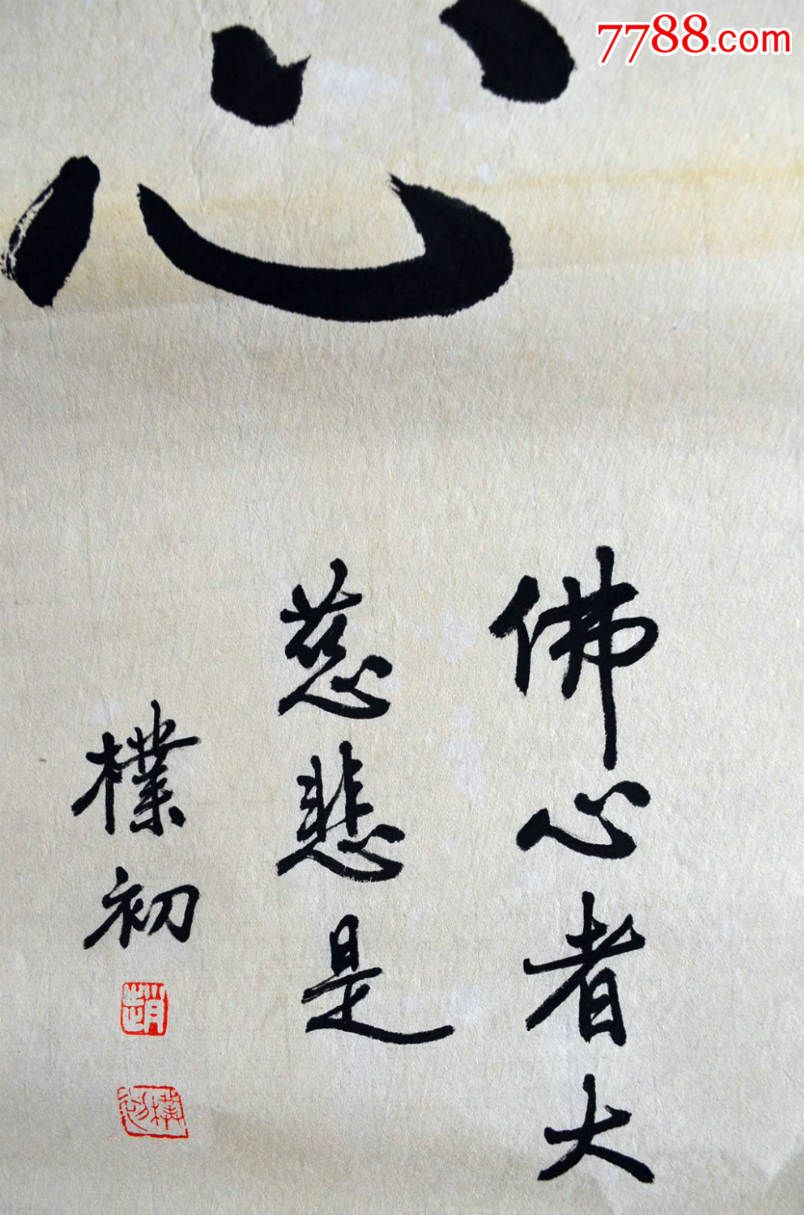 7788.com
心
佛心者大
慈悲是
樸初
趙
樸初